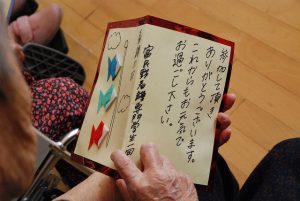 参加して頂き
ありがとうございます。
これからもお元気で
お過ごし下さい。
専門学生一同